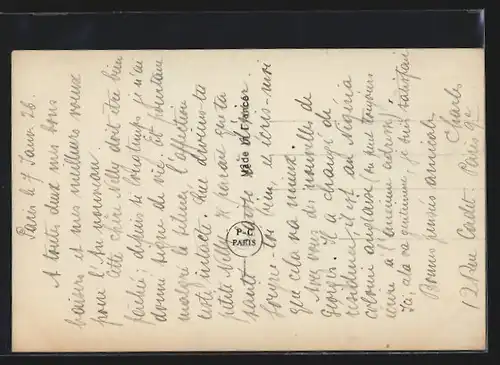 Paris le 7 Janv 26.
A toutes deux mes bons
baisers et mes meilleurs voeux
pour l'An nouveau.
Cette chère Nelly doit être bien
fachée; depuis si longtemps je n'ai
donné signe de vie. Et pourtant
malgré le silence l'affection
est intacte. Que deviens-tu
petite Nelly? Il paraît que ta
santé
soigne-toi bien, et écris-moi
que cela va mieux.
Avez vous des nouvelles de
Georges. Il a changé de
résidence, il est au Nigeria
colonie anglaise. Tu peux toujours
écrire à l'ancienne adresse.
Ici, cela va
Bonnes pensées amicales
Charles
12 Rue Cadet. Paris 9e
Made in France
P-C
PARIS